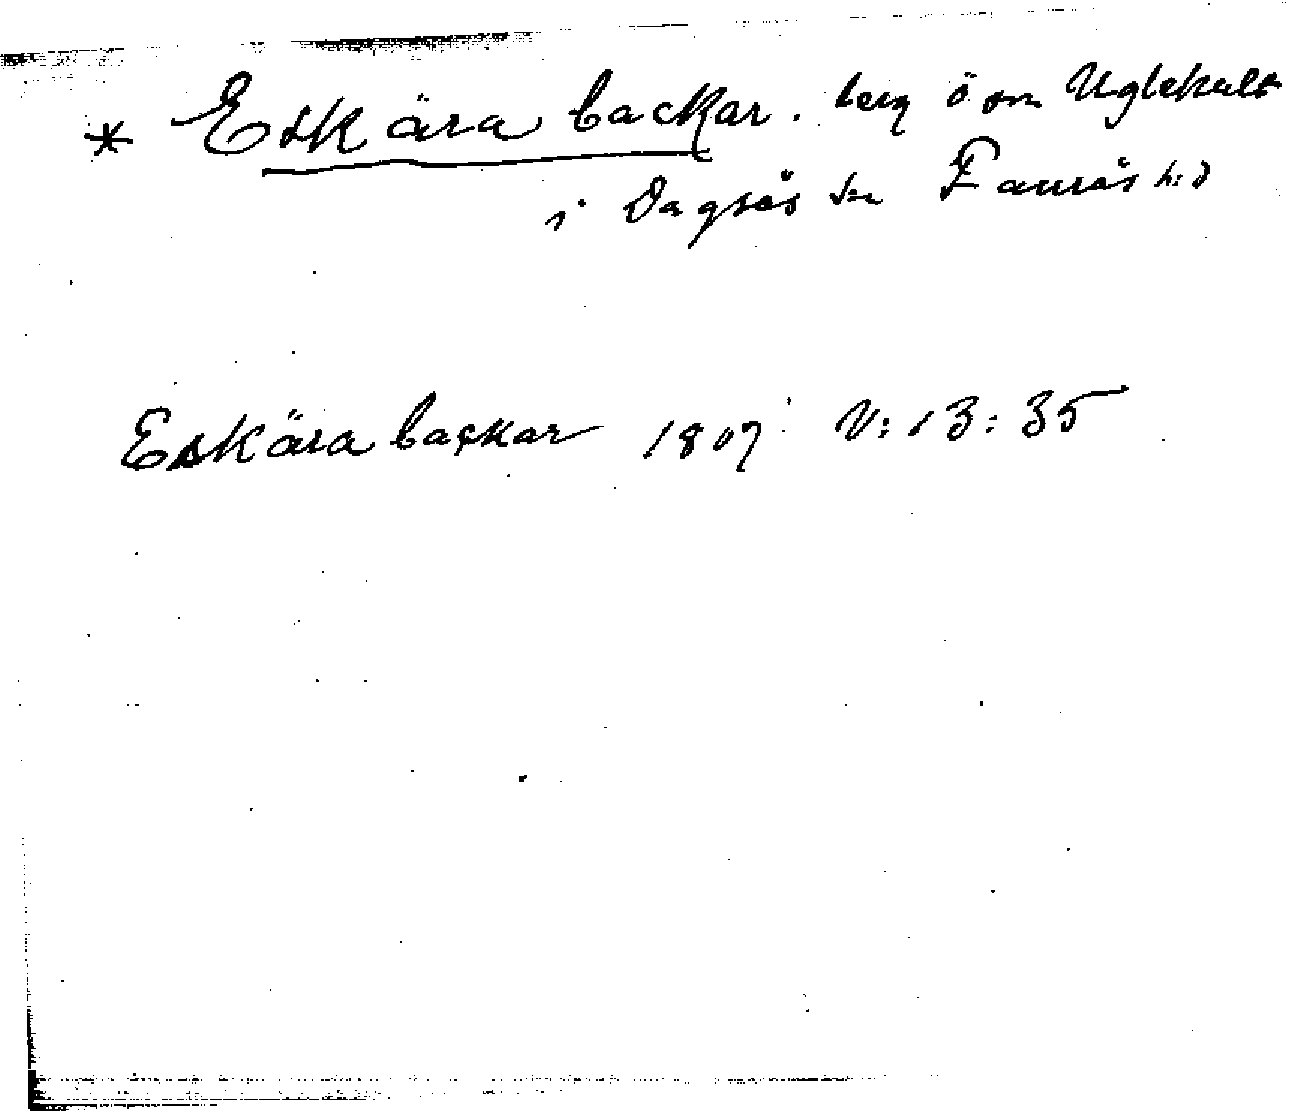 * Eskära backar. berg ö om Uglekult
i Dagsås sn Faurås h:d
Eskära backar 1807 V:13:35